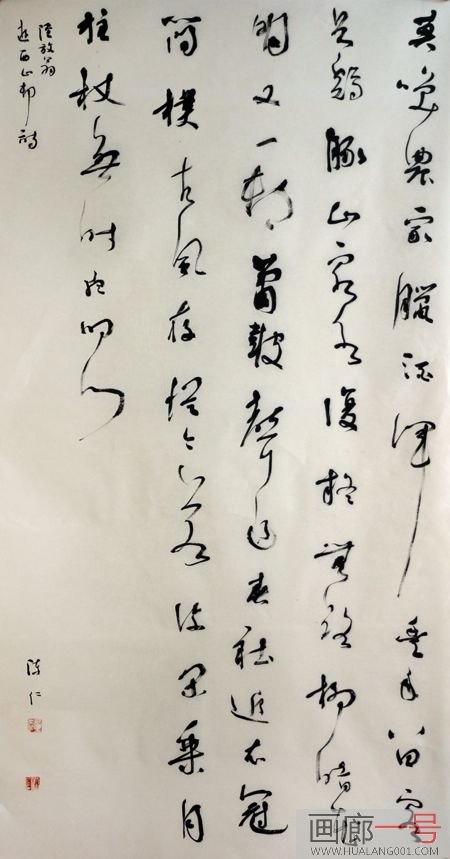 莫咲農家臘酒渾豊年留客
足鷄豚山窮水復疑無路柳暗花
明又一邨簫鼓聲追春社近衣冠
簡樸古風存從今若許閑乘月
拄杖無時夜叩門
陸放翁
遊西山邨詩
陳仁
画廊一号
WWW.HUALANG001.COM